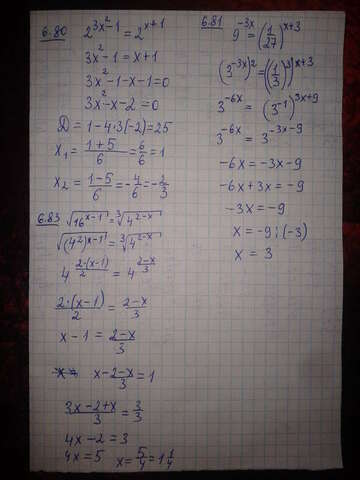 6.80 2^{3x²-1} = 2^{x+1}
3x²-1 = x+1
3x²-1-x-1=0
3x²-x-2=0
D=1-4·3(-2)=25
x₁ = (1+5)/6 = 6/6 = 1
x₂ = (1-5)/6 = -4/6 = -2/3
6.83 √(16^{x-1}) = ∛(4^{2-x})
√((4²)^{x-1}) = ∛(4^{2-x})
4^{(2·(x-1))/2} = 4^{(2-x)/3}
(2·(x-1))/2 = (2-x)/3
x-1 = (2-x)/3
x - (2-x)/3 = 1
(3x-2+x)/3 = 3/3
4x-2=3
4x=5 x=5/4=1 1/4
6.81
9^{-3x} = (1/27)^{x+3}
(3^{-3x})² = ((1/3)³)^{x+3}
3^{-6x} = (3^{-1})^{3x+9}
3^{-6x} = 3^{-3x-9}
-6x = -3x-9
-6x+3x = -9
-3x = -9
x = -9:(-3)
x = 3